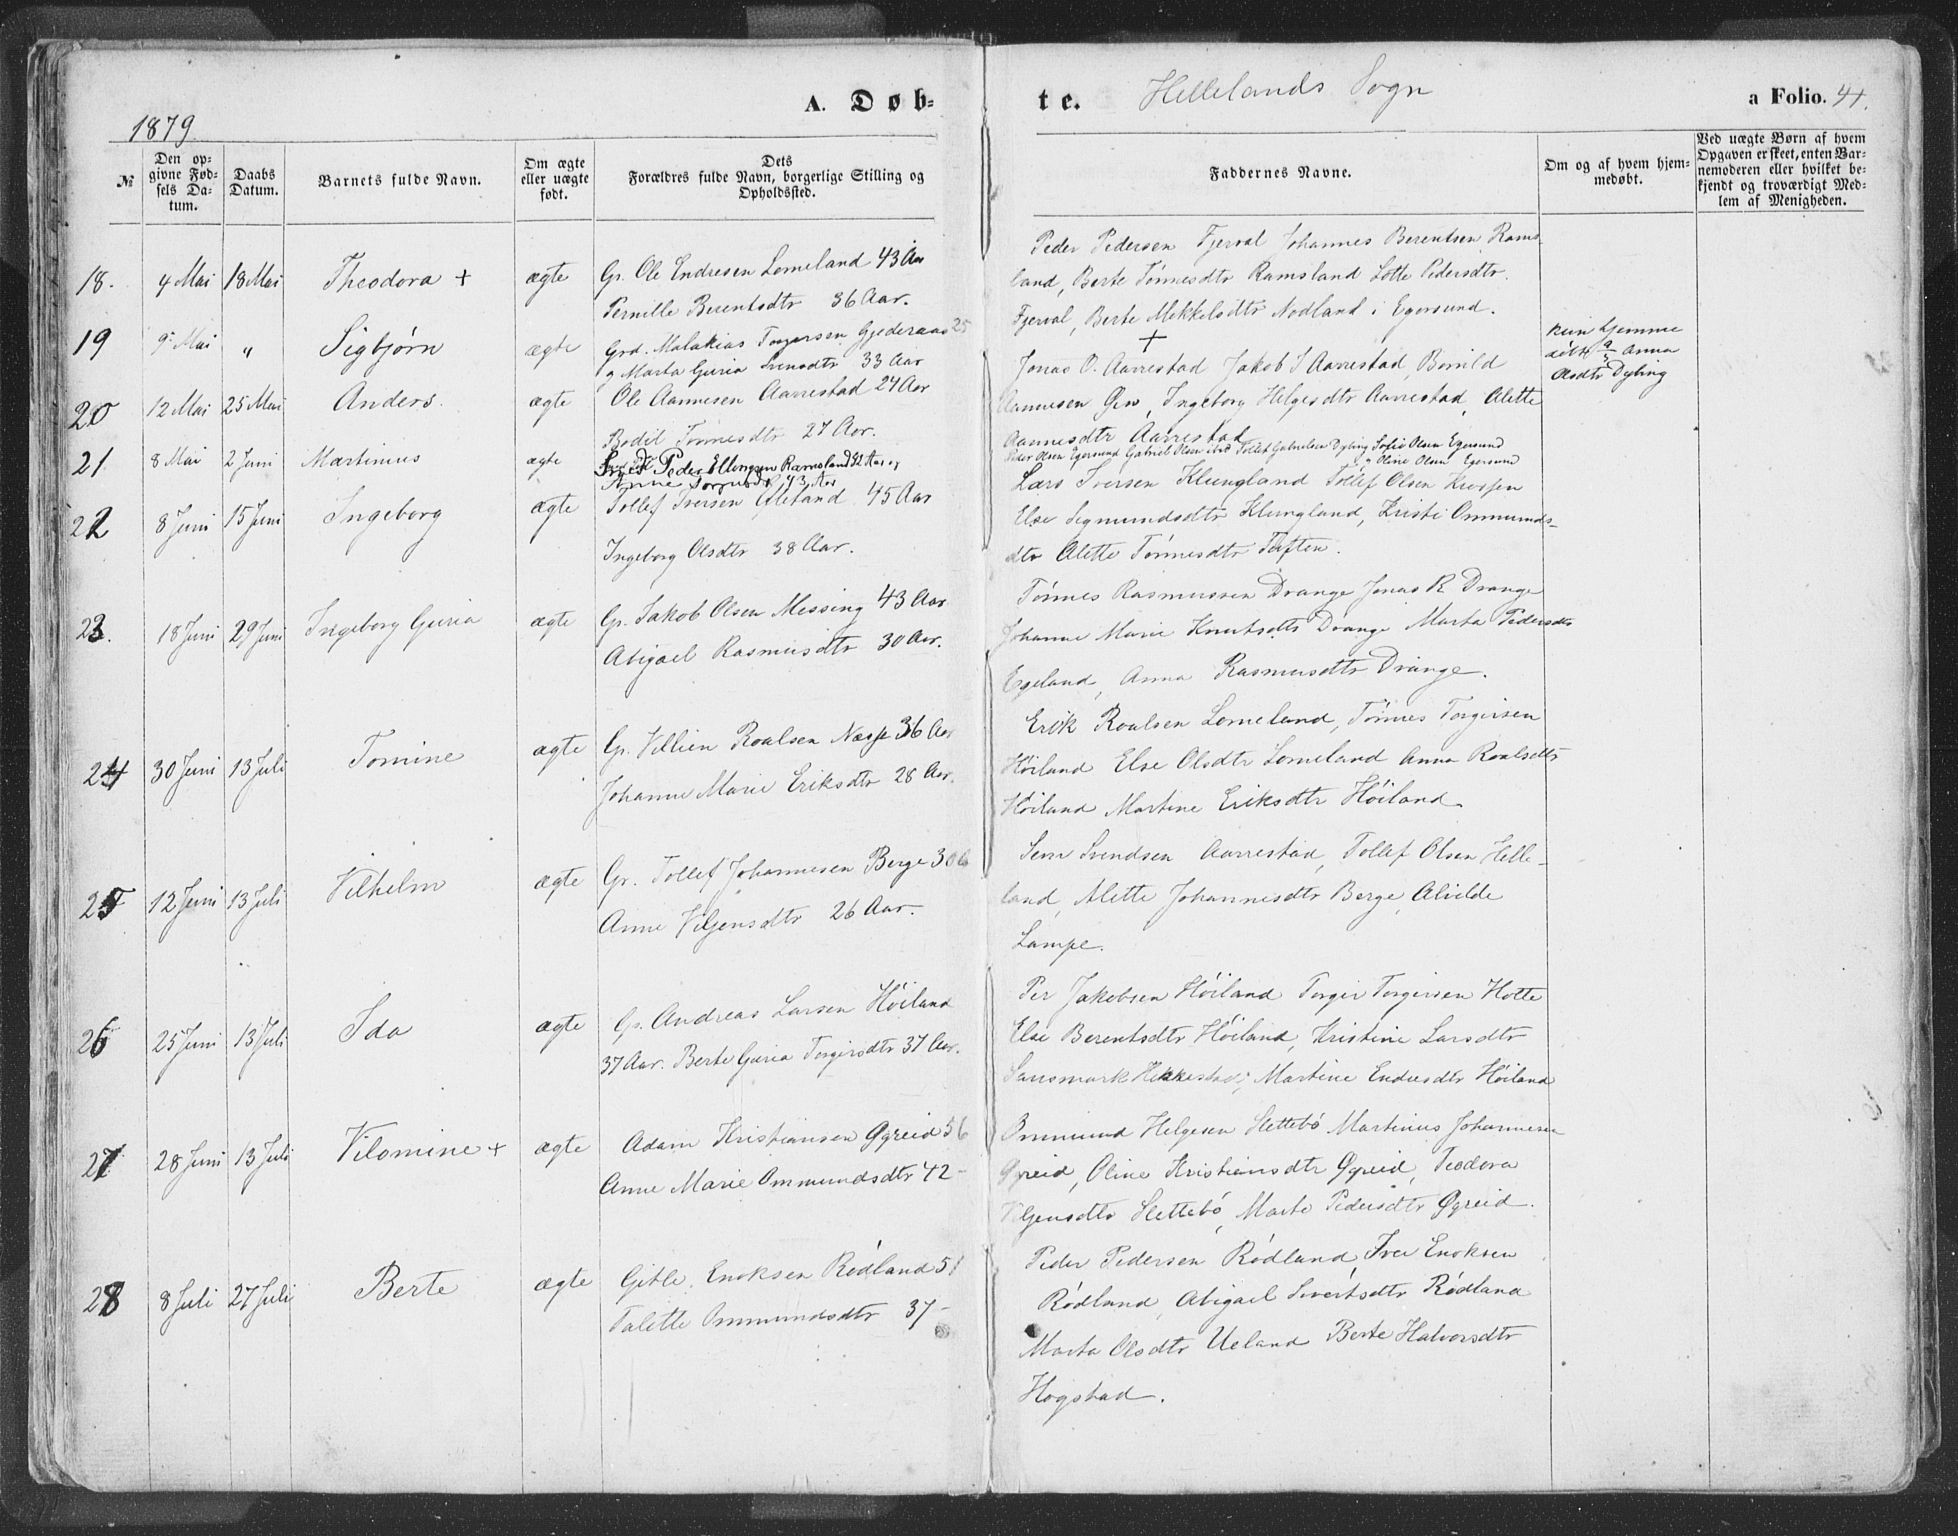 1879
A. Døb=
te.
Hellelands Sogn
a Folio. 41.
№
Den op=
givne Fød=
sels Da=
tum.
Daabs
Datum.
Barnets fulde Navn.
Om ægte
eller uægte
født.
Dets
Forældres fulde Navn, borgerlige Stilling og
Opholdssted.
Faddernes Navne.
Om og af hvem hjem=
medøbt.
Ved uægte Børn af hvem
Opgaven er skeet, enten Bar=
nemoderen eller hvilket be=
kjendt og troværdigt Med=
lem af Menigheden.
18. 4 Mai 18 Mai Theodora + ægte Gr. Ole Endresen Lomeland 43 Aar
Pernille Berentsdtr 36 Aar.
Peder Pedersen Fjerval Johannes Berentsen Rams-
land, Berte Tønnesdtr Ramsland Lotte Pedersdtr.
Fjerval, Berte Mikkelsdtr Nodland i Egersund.
19 9 Mai " Sigbjørn ægte Grd. Malakias Torgersen Gjederaas 25
og Marta Guria Svensdtr 33 Aar
+
kun hjemme
Anna
Olsdtr Dybing
20 12 Mai 25 Mai Anders. ægte Ole Aannesen Aarrestad 24 Aar
Bodil Tønnesdtr 27 Aar.
Jonas O. Aarrestad Jakob J Aarrestad, Bomild
Aannesen Gro, Ingeborg Helgesdtr Aarrestad, Alette
Aannesdtr Aarrestad
21. 8 Mai 2 Juni Martinius ægte Peder Ellingsen Ramsland
Anne 43 Aar
Peder Olsen Egersund Gabriel Olsen ibid Tollef Gabrielsen Dybing Sofie Olsen Egersund
Oline Olsen Egersund
22 8 Juni 15 Juni Ingeborg ægte Tollef Iversen 45 Aar
Ingeborg Olsdtr 38 Aar.
Lars Iversen Klungland Tollef Olsen
Else Sigmundsdtr Klungland, Kristi Ommunds-
dtr Alette Tønnesdtr Tuften.
23. 18 Juni 29 Juni Ingeborg Guria ægte Gr. Jakob Olsen Messing 43 Aar
Abigael Rasmusdtr 30 Aar.
Tønnes Rasmussen Drange Jonas R Drange
Johanne Marie Knutsdtr Drange Marta Pedersdtr
Egeland, Anna Rasmusdtr Drange.
24 30 Juni 13 Juli Tomine ægte Gr. Villien Roalsen Næsse 36 Aar
Johanne Marie Eriksdtr 28 Aar.
Erik Roalsen Lomeland, Tønnes Torgersen
Höiland Else Olsdtr Lomeland Anna Roalsdtr
Höiland Martine Eriksdtr Höiland
25 12 Juni 13 Juli Vilhelm ægte Gr. Tollef Johannesen Berge 30 A
Anne Viljensdtr 26 Aar.
Sem Svendsen Aarrestad, Tollef Olsen Helle-
land, Alette Johannesdtr Berge, Alvilde
Lampe.
26 25 Juni 13 Juli Ida ægte Gr. Andreas Larsen Höiland
37 Aar. Berte Guria Torgersdtr 37 Aar.
Per Jakobsen Höiland Torger Torgersen Hotte
Else Berentsdtr Höiland, Kristine Larsdtr
Martine Endresdtr Höiland
27 28 Juni 13 Juli Vilomine + ægte Adam Kristiansen Øgreid 56
Anne Marie Ommundsdtr 42 -
Ommund Helgesen Slettebö Martinius Johannesen
Øgreid, Oline Kristiansdtr Øgreid, Teodora
Viljensdtr Slettebö, Marte Pedersdtr Øgreid.
28 8 Juli 27 Juli Berte ægte Gitle Enoksen Rödland 51
Talette Ommundsdtr 37 -
Peder Pedersen Rödland, Iver Enoksen
Rödland, Abigael Sivertsdtr Rödland
Marta Olsdtr Ueland Berte Halvorsdtr
Hogstad.